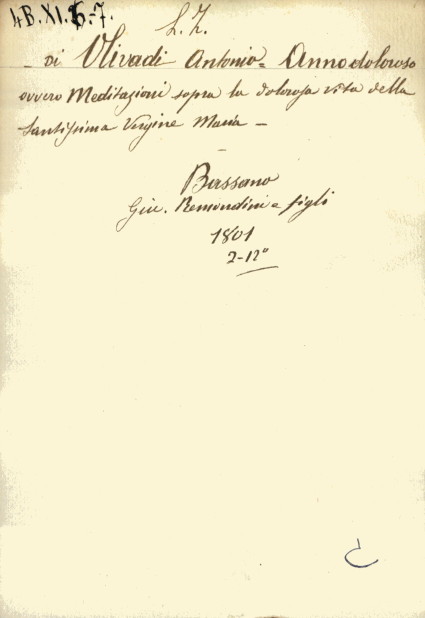 4B. XI. 6-7.
L. Z.
di Olivadi Antonio = Anno doloroso
ovvero Meditazioni sopra la dolorosa vita della
Santissima Vergine Maria —
Bassano
Giu. Remondini e figli
1801
2-12°